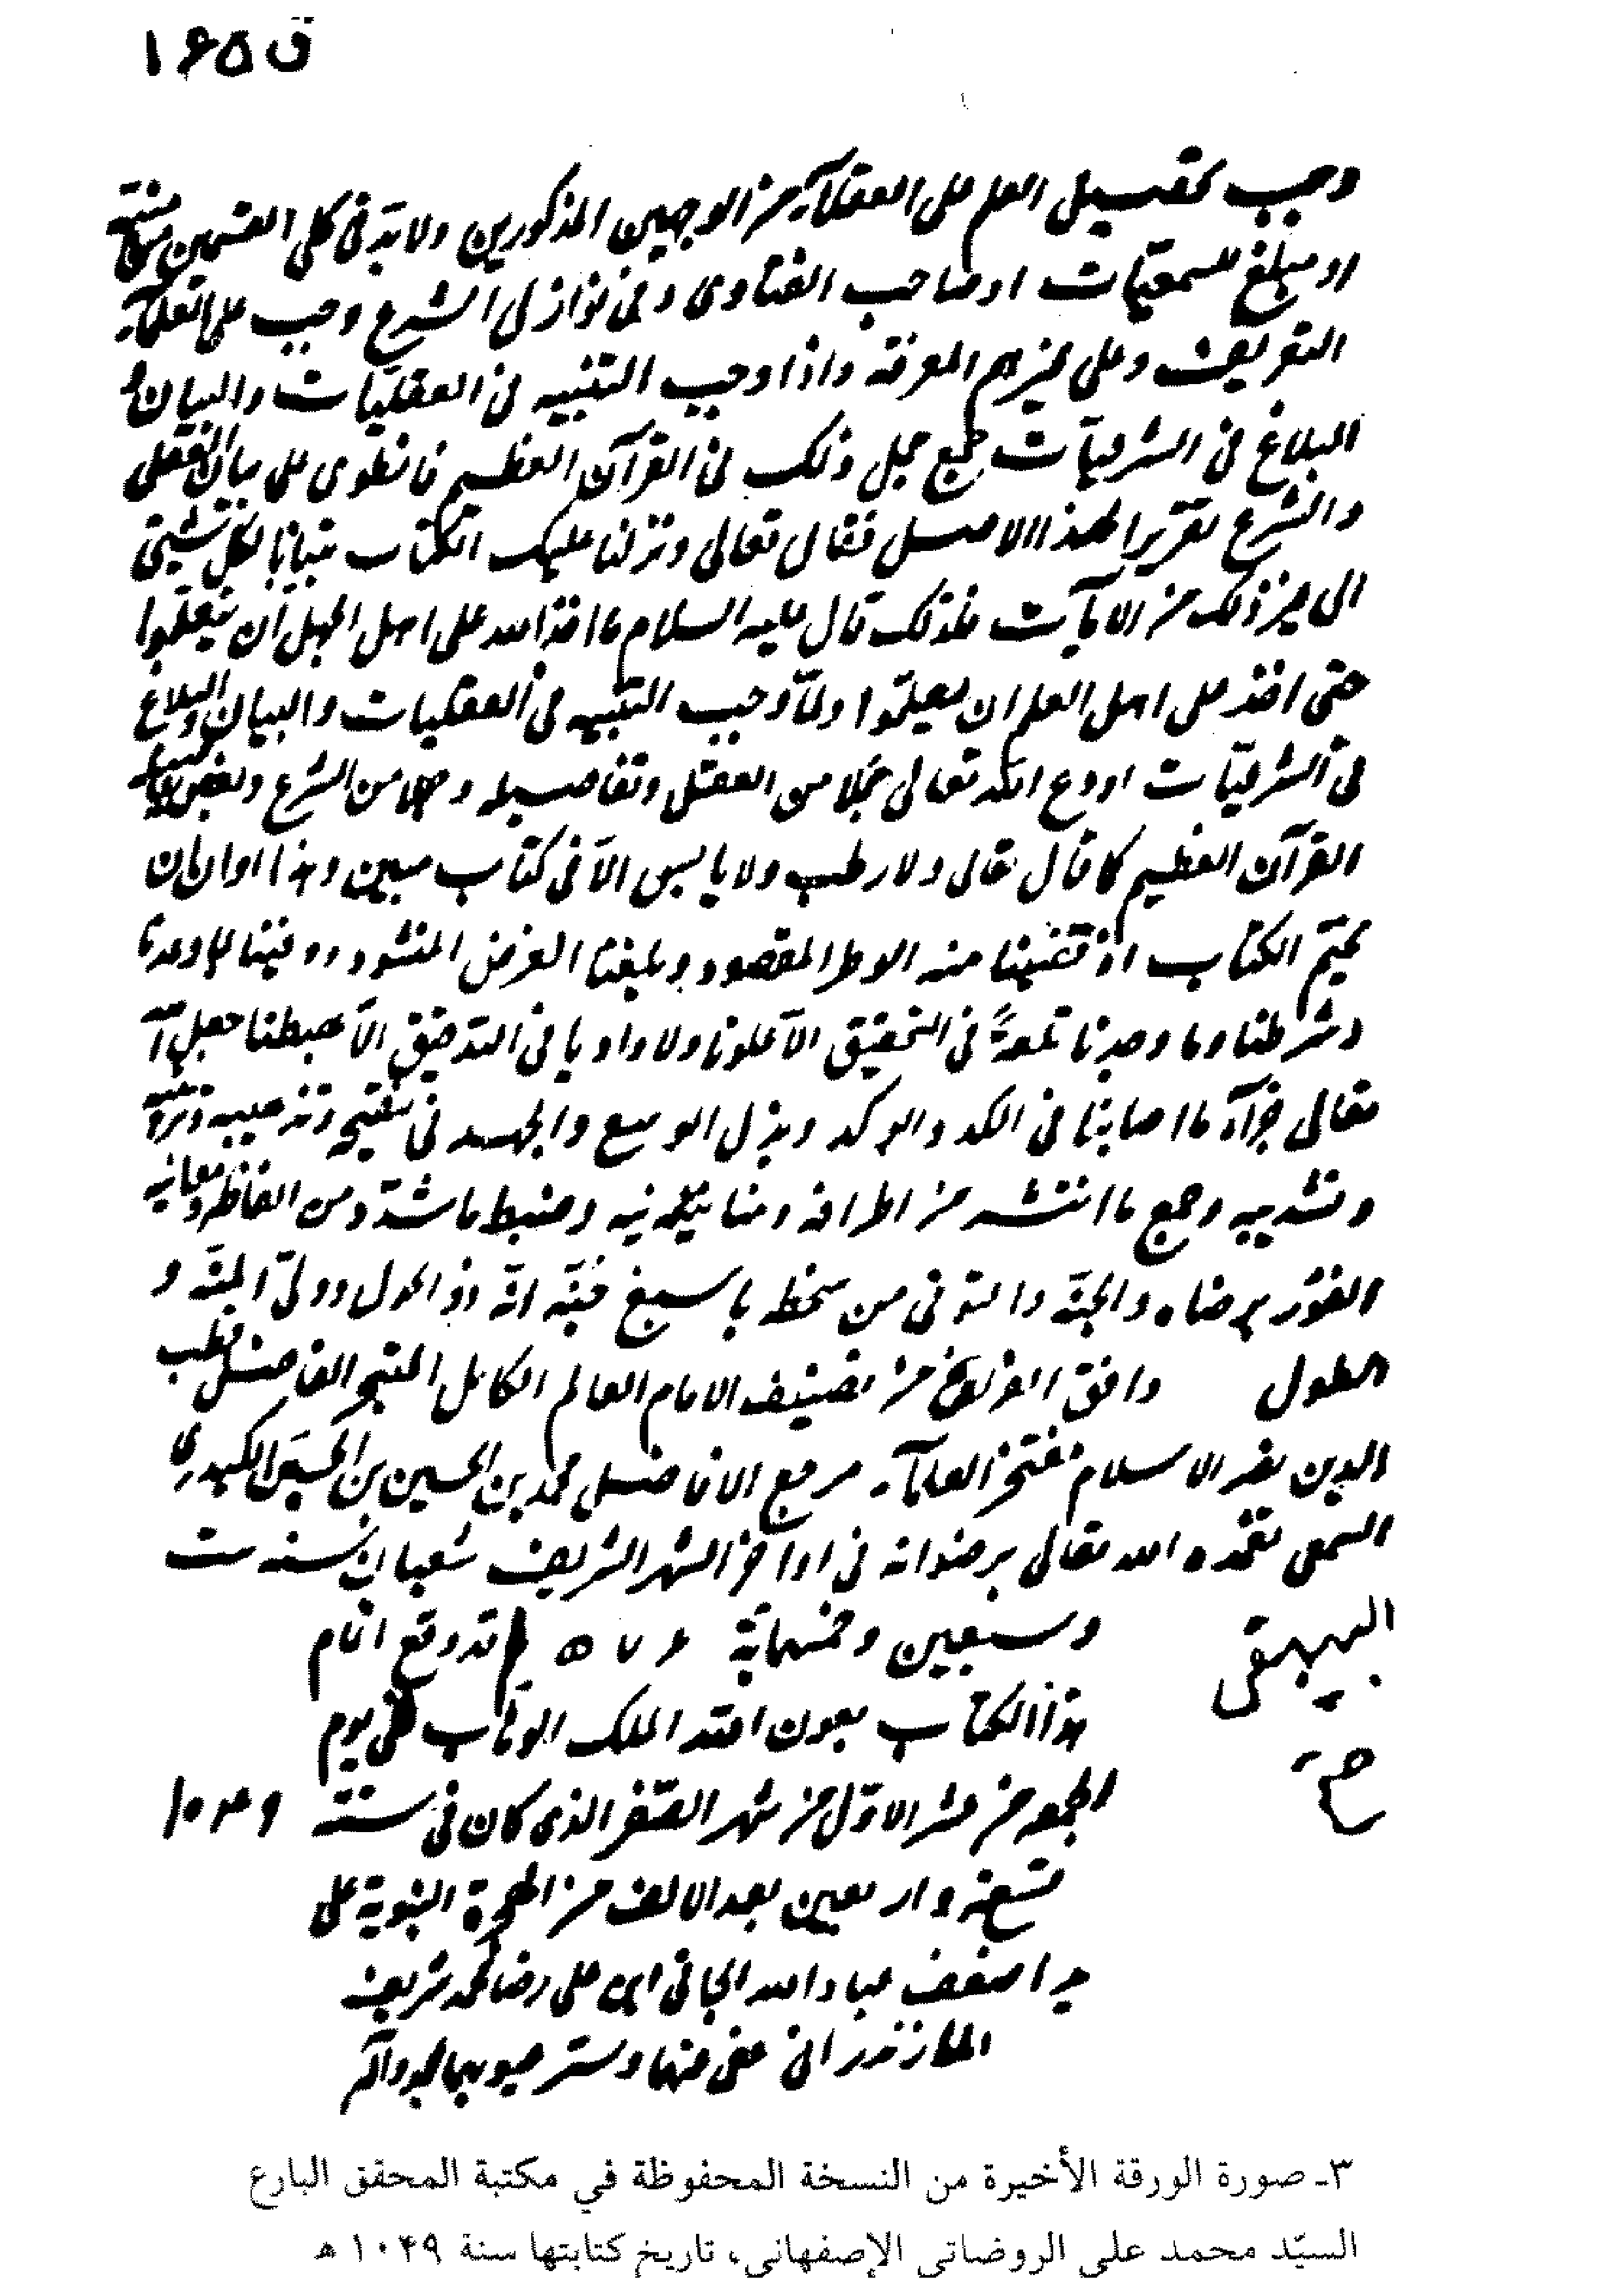 ق ١٦٥
وجب تحصيل العلم على العقلآء من الوجهين المذكورين ولا بد فى كلى القسمين من منبه
او مبلغ للسمعيات او صاحب الفتاوى وفى نوازل الشرع وجب على العلمآء
التعريف وعلى غيرهم المعرفة واذا وجب التنبيه فى العقليات والبيان و
البلاغ فى الشرعيات جمع جمل ذلك فى القرآن العظيم فانطوى على بيان العقلى
والشرع تقريرا لهذا الاصل فقال تعالى ونزلنا عليك الكتاب تبيانا لكل شيئ
الى غير ذلك من الايآت فلذلك قال عليه السلام ما اخذ الله على اهل الجهل ان يتعلموا
حتى اخذ على اهل العلم ان يعلموا ولما وجب التنبيه فى العقليات والبيان والبلاغ
فى الشرعيات اودع الله تعالى جملا من العقل وتفاصيله وجملا من الشرع وبعض تفاصيله
القرآن العظيم كما قال تعالى ولا رطب ولا يابس الا فى كتاب مبين وهذا اوان ان
نختم الكتاب اذ قضينا منه الوطر المقصود وبلغنا الغرض المنشود ووفينا بما وعدنا
وشرطنا وما وجدنا تلعة فى التحقيق الا علونا ولا واديا فى التدقيق الا هبطنا جعل الله
تعالى جزآء ما اصابنا فى الكد والوكد وبذل الوسع والجهد فى تنقيحه وتهذيبه وترتيبه
وتشذيبه وجمع ما انتشر من اطرافه وضبط ما شذ من الفاظه ومعانيه
الفوز برضاه والجنة والتوقى من سخطه باسبغ جنة انه ذو الحول وولى المنة و
الطول وافق الفراغ من تصنيف الامام العالم الكامل المتبحر الفاضل قطب
الدين نصر الاسلام مفتخر العلمآء مرجع الافاضل محمد بن الحسين بن الحسين الكيدرى
السمى تغمده الله تعالى برضوانه فى اواخر الشهر الشريف شعبان سنه ست
البيهقى
وسبعين وخمسماية ٥٧٦ قد وقع اتمام
هذا الكتاب بعون الله الملك الوهاب فى يوم
الجمعه من عشر الاول من شهر الصفر الذى كان فى سنة ١٠٤٩
تسعة واربعين بعد الالف من الهجرة النبوية على
يد اضعف عباد الله الجانى ابن على رضا محمد شريف
المازندرانى عفى عنهما وستر عيوبهما
٣ـ صورة الورقة الأخيرة من النسخة المحفوظة في مكتبة المحقق البارع
السيّد محمد علي الروضاتي الإصفهاني، تاريخ كتابتها سنة ١٠٤٩ ه